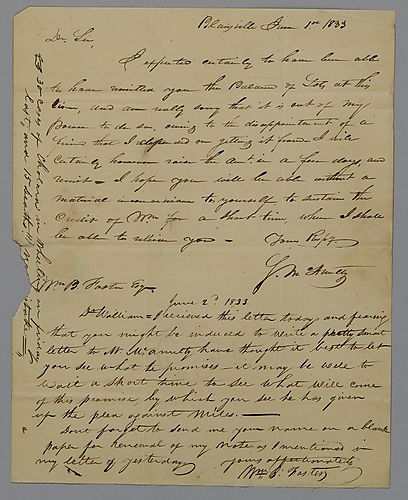 Blairsville June 1st 1833
Dr. Sir,
I expected certainly to have been able
to have remitted you the Balance of Lots at this
time, and am really sorry that it is out of my
power to do so, owing to the disappointment of a
friend that I depended on getting it from I will
certainly however raise the amt in a few days, and
remit – I hope you will be able without a
material inconvenience to yourself to sustain the
Credit of for a short time, when I shall
be able to relieve you –
Yours Respy
Wm B. Foster Esq
June 2d 1833
Dr William = I recieved this letter today & fearing
that you might be induced to write a pretty smart
letter to Mr McAnulty have thought it best to let
you see what he promises – it may be well to
wait a short time to see what will come
of this promise by which you see he has given
up the plea against Miles. –
Dont forget to send me your name on a blank
paper for renewal of my note as I mentioned in
my letter of yesterday yours affectionately
Wm B. Foster
30 cases of Cholera in Wheeling on friday
last, and 15 deaths